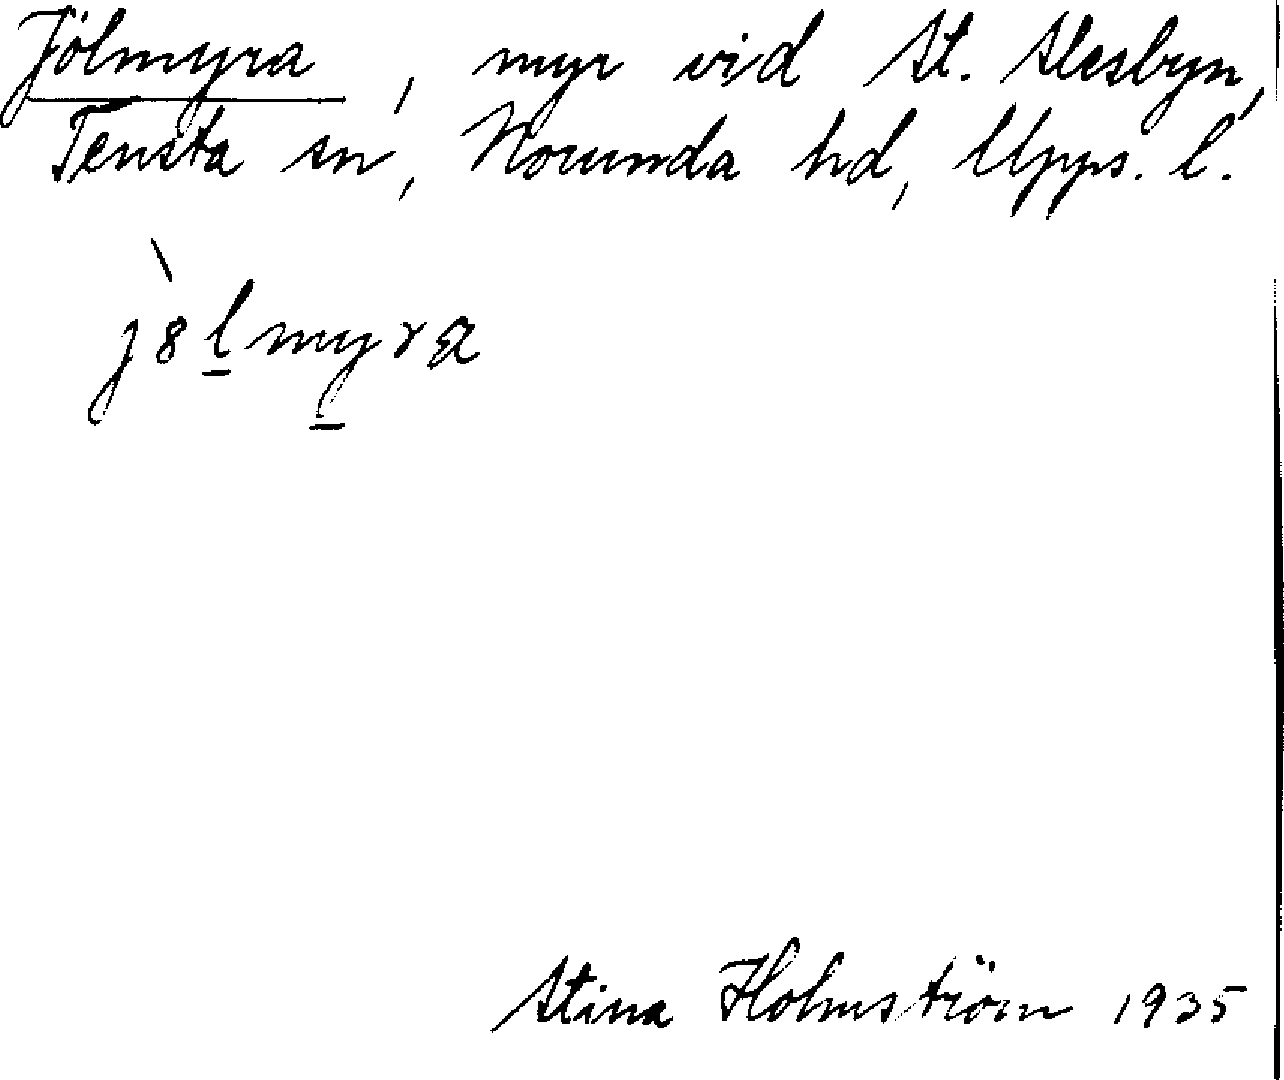 Jölmyra, myr vid St. Alesbyn,
Tensta sn, Norunda hd, Upps. l.
j8lmyra
Stina Holmström 1935